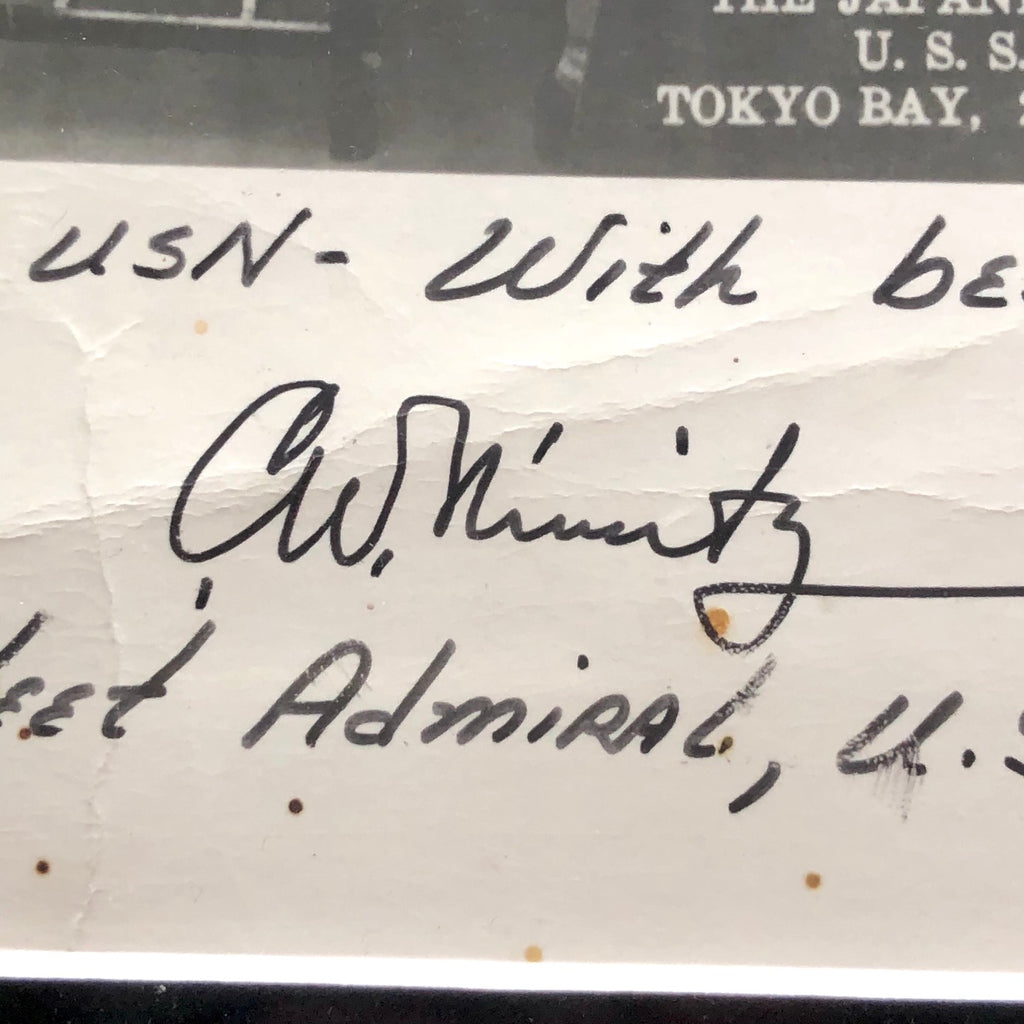 THE JAPAN
U. S. S.
TOKYO BAY,
USN - With be
CW. Nimitz
leet Admiral, U.S